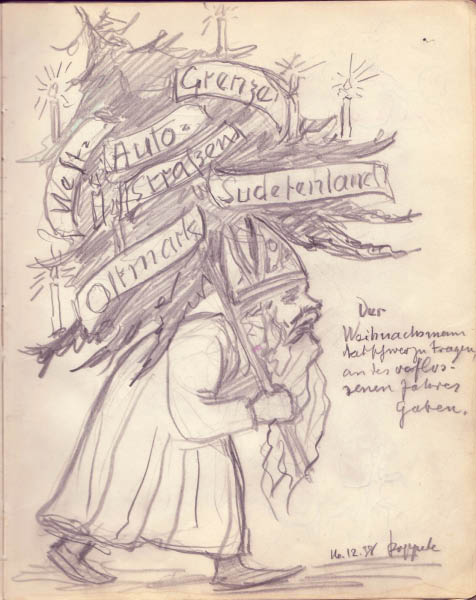 Grenze
Welt-
Auto-
Straßen
Sudetenland
Ostmark
Der
Weihnachsmann
hat schwer zu tragen
an des verflos-
senen Jahres
Gaben.
16.12.38